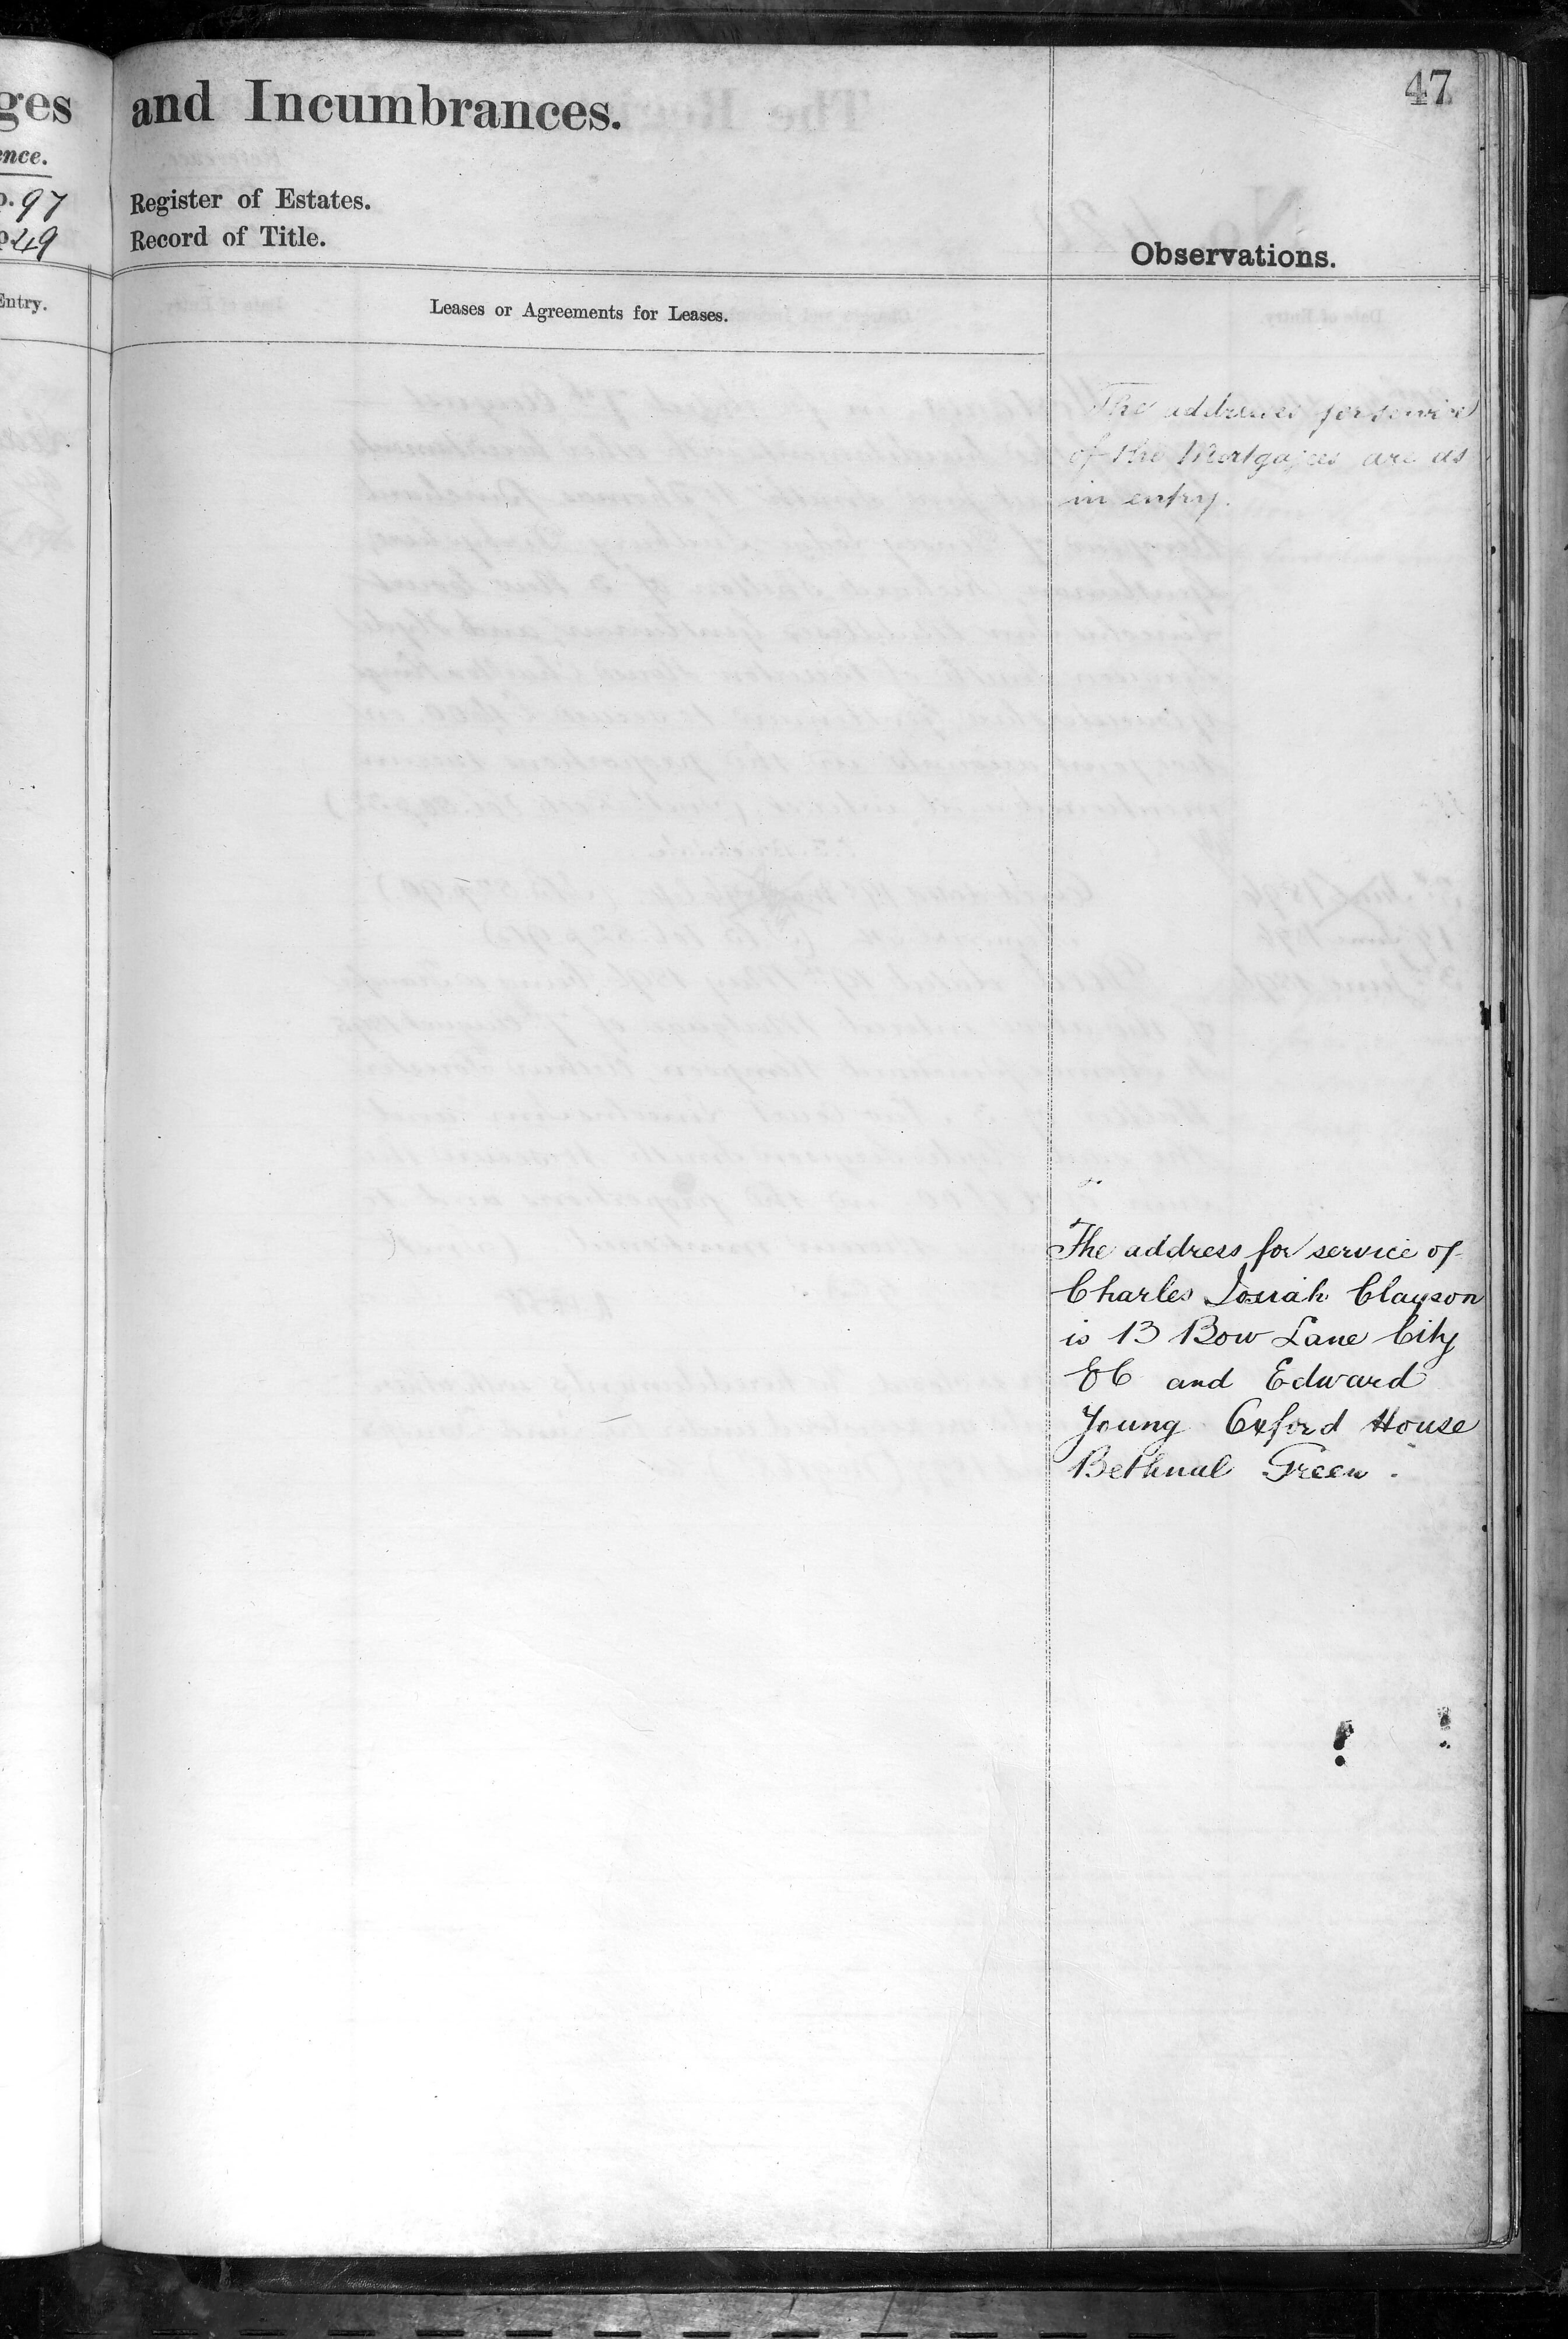 47
ges
and Incumbrances.
ence.
p. 97
Register of Estates.
p 49
Record of Title.
Observations.
Entry.
Leases or Agreements for Leases.
The addresses for service
of the Mortgagees are as
in entry.
The address for service of
Charles Josiah Clayson
is 13 Bow Lane City
EC and Edward
Young Oxford House
Bethnal Green.